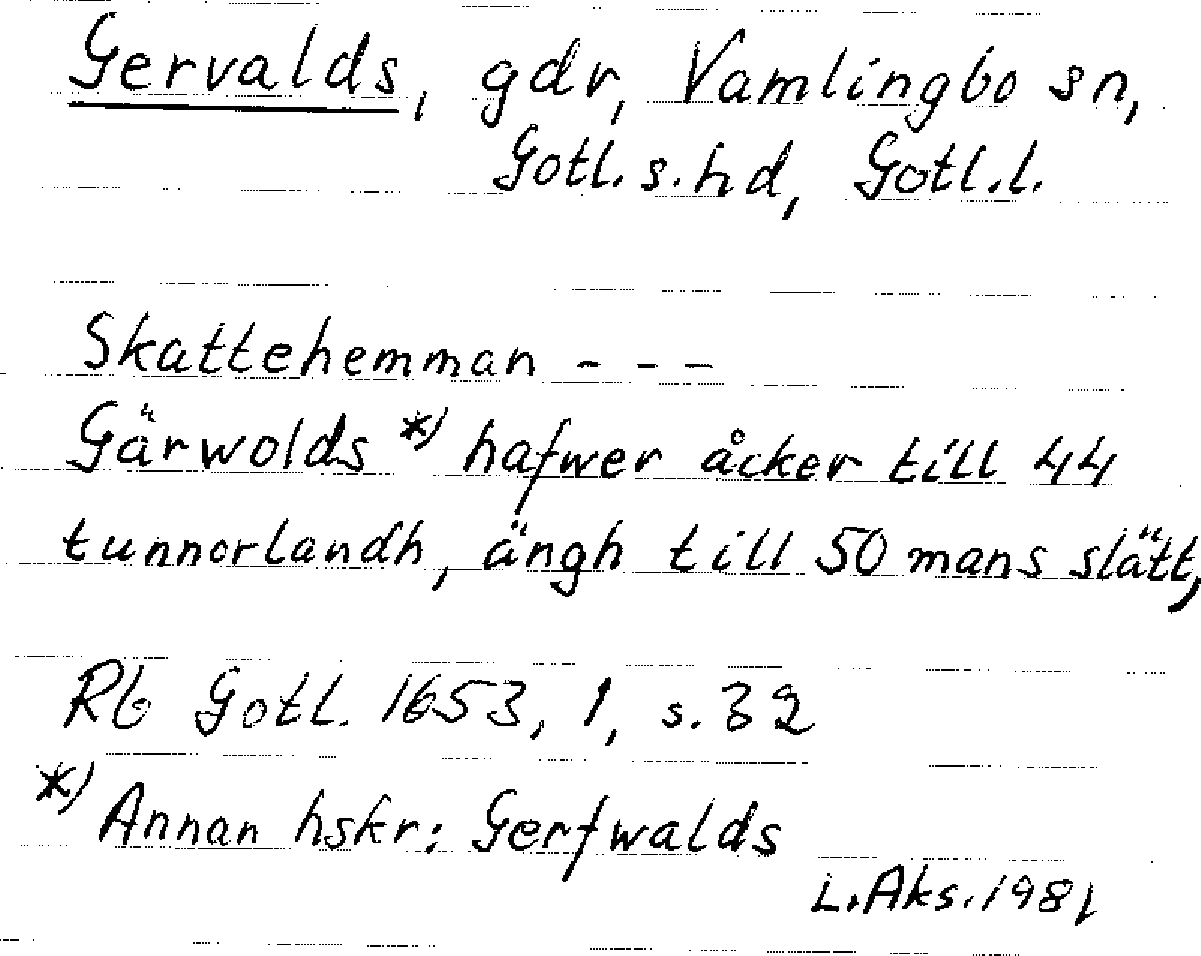 Gervalds, gdr, Vamlingbo sn,
Gotl. s. hd, Gotl. l.
Skattehemman - - -
Gärwolds *) hafwer åcker till 44
tunnorlandh, ängh till 50 mans slätt,
Rb Gotl. 1653, 1, s. 32
*) Annan hskr: Gerfwalds
L. Aks. 1981